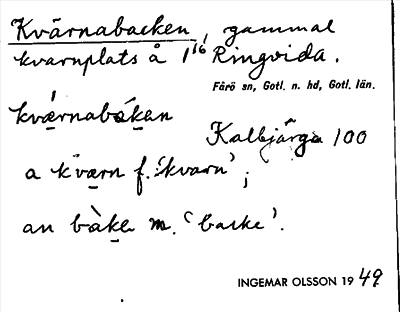 Kvärnabacken, gammal
kvarnplats å 1/16 Ringvida.
Fårö sn, Gotl. n. hd, Gotl. län.
kværnabáken
Kalbjärga 100
a kværn f. 'kvarn';
an bàke m. 'backe'.
INGEMAR OLSSON 1949